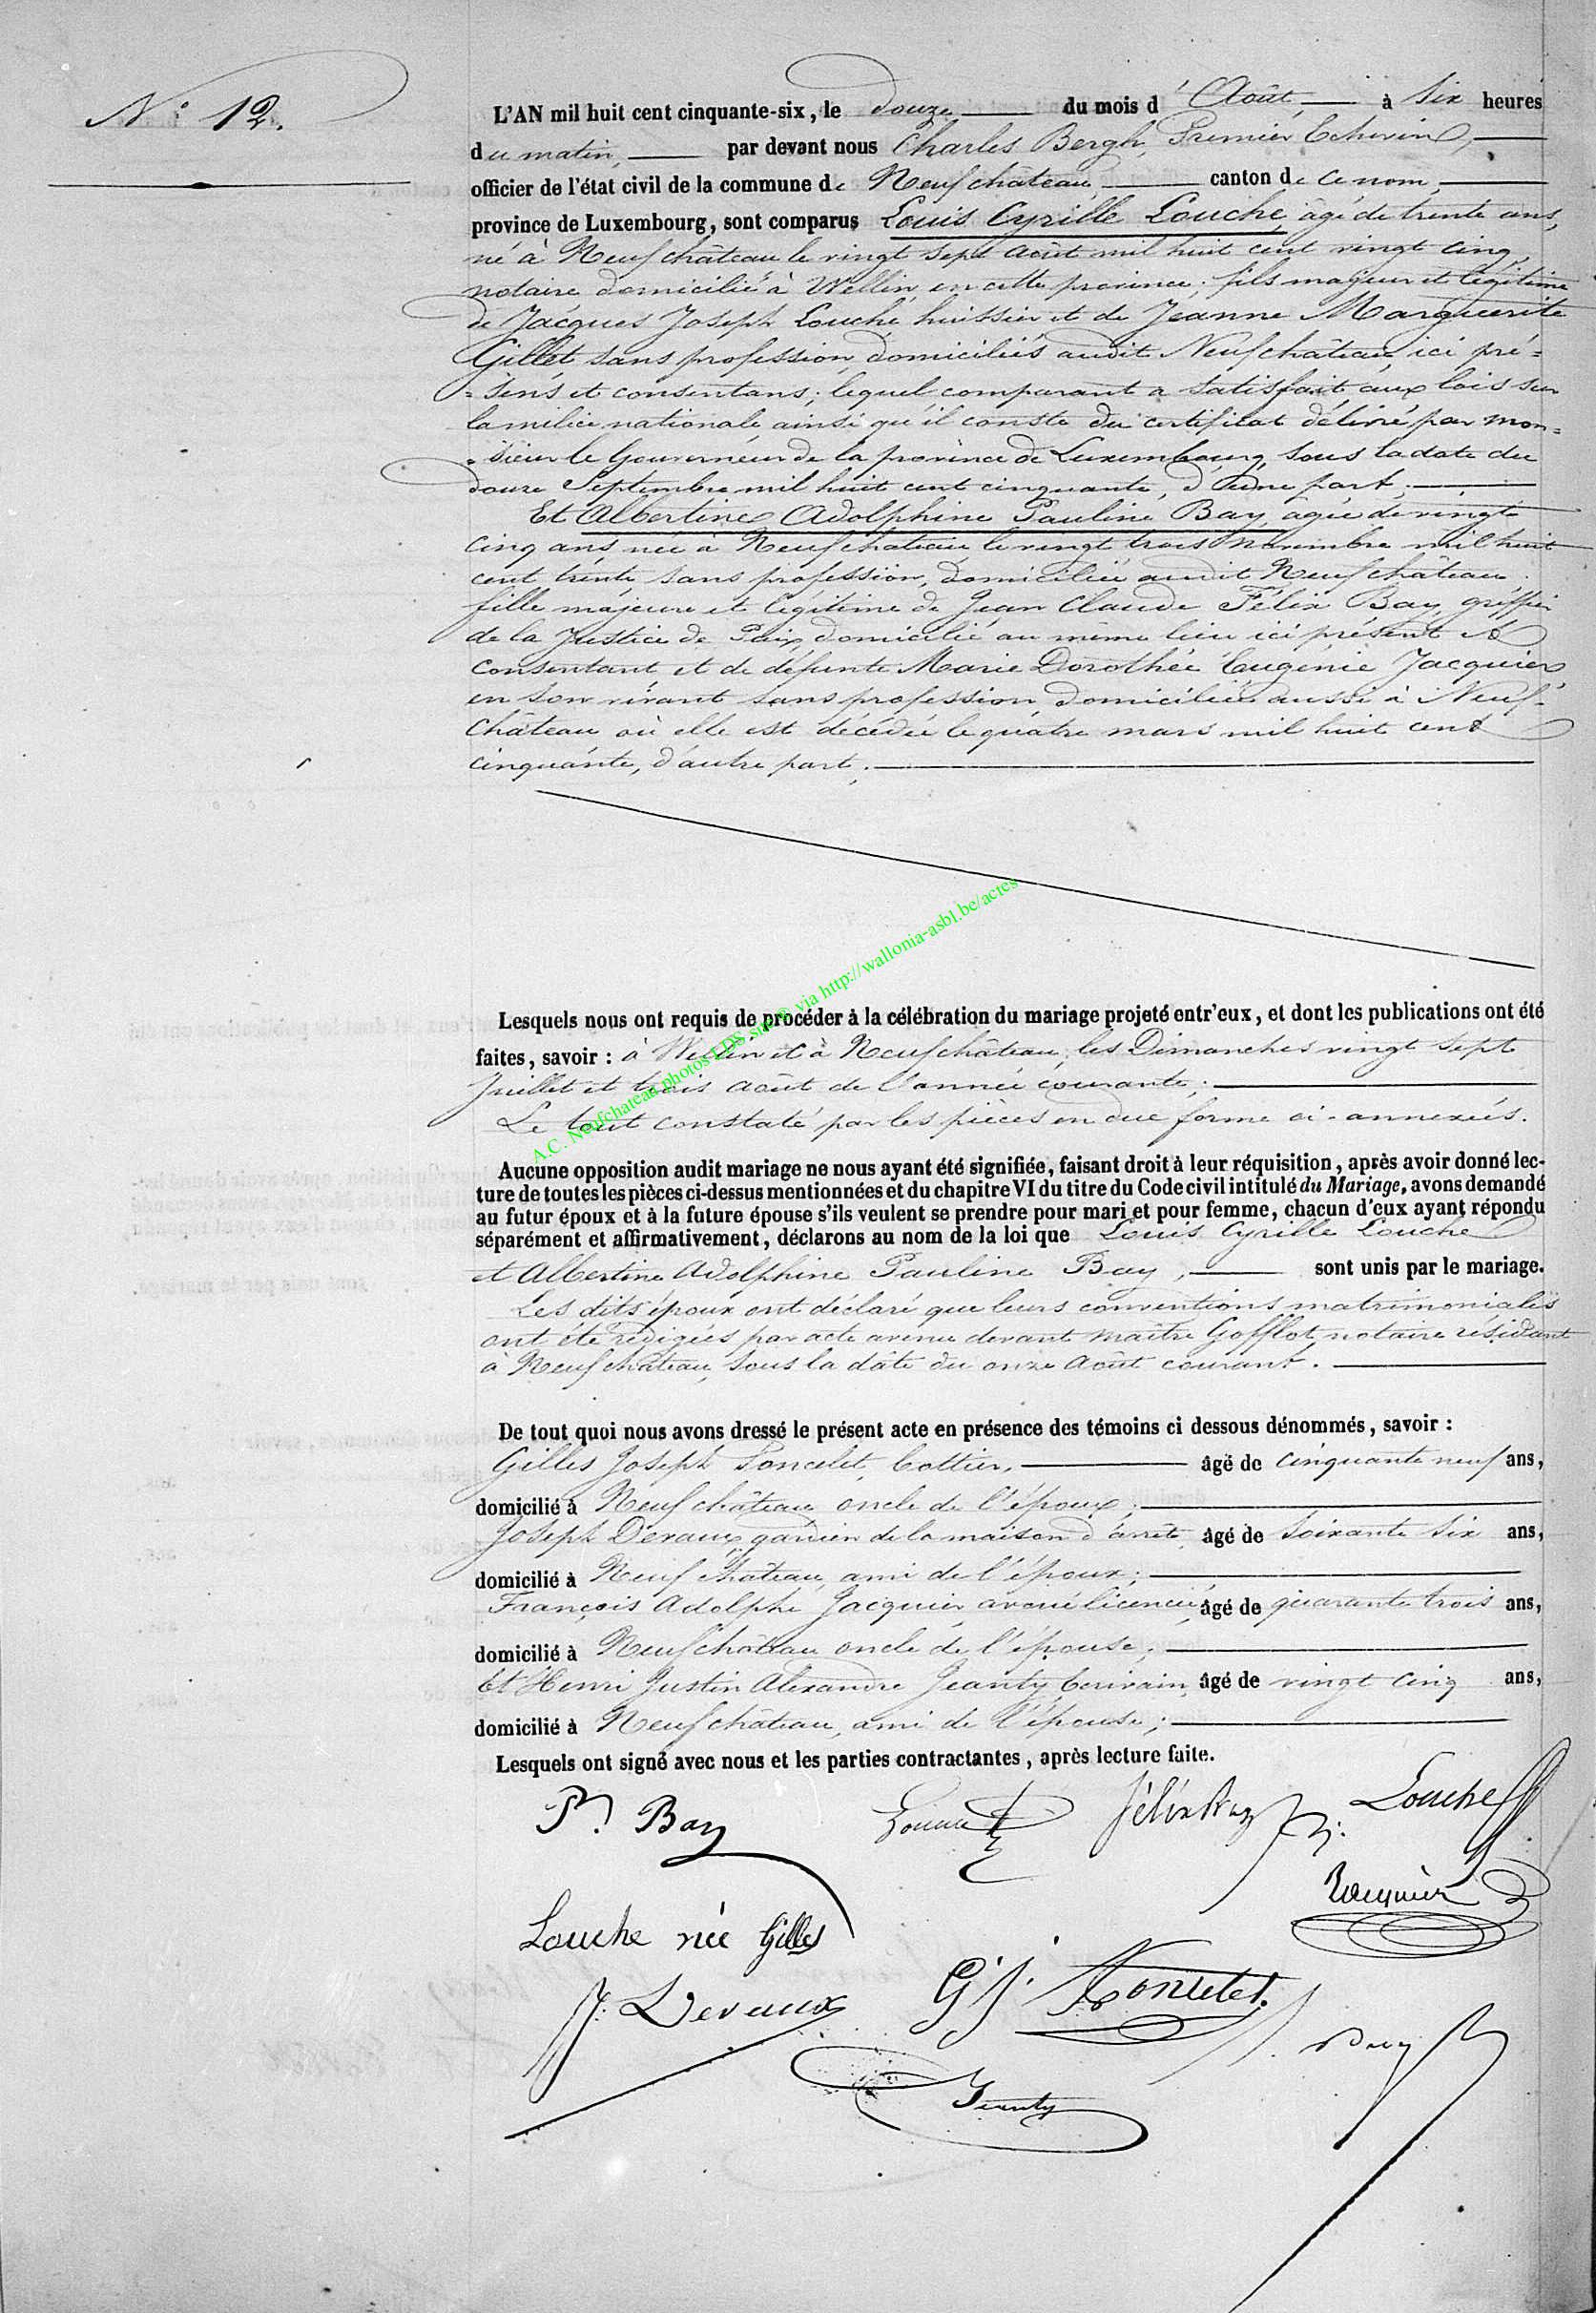 N° 12.
L'AN mil huit cent cinquante-six, le douze du mois d'Août, à six heures
du matin, par devant nous Charles Bergh, Premier Echevin,
officier de l'état civil de la commune de Neufchâteau canton de ce nom,
province de Luxembourg, sont comparus Louis Cyrille Louche, âgé de trente ans,
né à Neufchâteau le vingt sept août mil huit cent vingt cinq,
notaire domicilié à Wellin, en cette province; fils majeur et légitime
de Jacques Joseph Louche huissier et de Jeanne Marguerite
Gillet sans profession, domiciliés audit Neufchâteau, ici pré=
=sens et consentans; lequel comparant a satisfait aux lois sur
la milice nationale ainsi qu'il conste du certificat délivré par mon=
=sieur le Gouverneur de la province de Luxembourg sous la date du
douze Septembre mil huit cent cinquante, d'une part;
Et Albertine Adolphine Pauline Bay, agée de vingt
cinq ans, née à Neufchateau, le vingt trois novembre mil huit
cent trente, sans profession, domiciliée audit Neufchâteau,
fille majeure et légitime de Jean Claude Félix Bay, greffier
de la Justice de Paix, domicilié au même lieu ici présent et
consentant, et de défunte Marie Dorothée Eugénie Jacquier
en son vivant sans profession, domiciliée aussi à Neuf-
château où elle est décédée le quatre mars mil huit cent
cinquante, d'autre part.
Lesquels nous ont requis de procéder à la célébration du mariage projeté entr'eux, et dont les publications ont été
faites, savoir : à Wellin et à Neufchâteau, les Dimanches vingt sept
Juillet et trois août de l'année courante;
Le tout constaté par les pièces en due forme ci-annexées.
Aucune opposition audit mariage ne nous ayant été signifiée, faisant droit à leur réquisition, après avoir donné lec-
ture de toutes les pièces ci-dessus mentionnées et du chapitre VI du titre du Code civil intitulé du Mariage, avons demandé
au futur époux et à la future épouse s'ils veulent se prendre pour mari et pour femme, chacun d'eux ayant répondu
séparément et affirmativement, déclarons au nom de la loi que Louis Cyrille Louche
et Albertine Adolphine Pauline Bay, sont unis par le mariage.
Les dits époux ont déclaré que leurs conventions matrimoniales
ont été rédigées par acte avenu devant maître Gofflot notaire résidant
à Neufchâteau, sous la date du onze Août courant.
De tout quoi nous avons dressé le présent acte en présence des témoins ci dessous dénommés, savoir :
Gilles Joseph Poncelet, Cottier, âgé de cinquante neuf ans,
domicilié à Neufchâteau oncle de l'époux;
Joseph Devaux, gardien de la maison d'arrêt, âgé de soixante six ans,
domicilié à Neufchâteau, ami de l'époux;
François Adolphe Jacquier, avoué licencié, âgé de quarante trois ans,
domicilié à Neufchâteau oncle de l'épouse;
Et Henri Justin Alexandre Jeanty, Ecrivain, âgé de vingt cinq ans,
domicilié à Neufchâteau, ami de l'épouse;
Lesquels ont signé avec nous et les parties contractantes, après lecture faite.
P. Bay Louche Félix Bay Louche
Jacquier
Louche née Gillet
J. Devaux G. J. Poncelet.
Jeanty
A.C. Neufchateau photos EDS sur © via http://wallonia-asbl.be/actes